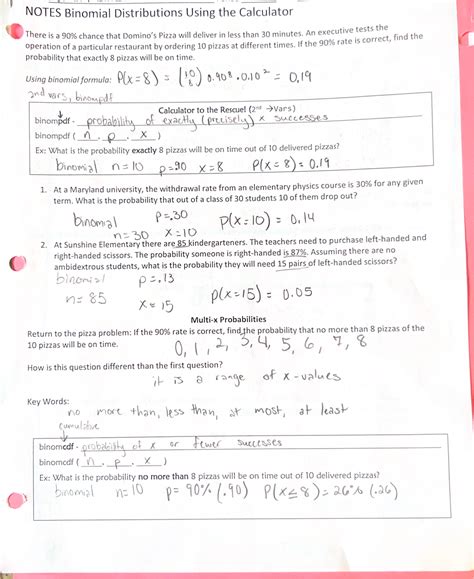 NOTES Binomial Distributions Using the Calculator
There is a 90% chance that Domino's Pizza will deliver in less than 30 minutes. An executive tests the
operation of a particular restaurant by ordering 10 pizzas at different times. If the 90% rate is correct, find the
probability that exactly 8 pizzas will be on time.
Using binomial formula: P(x=8) = (10 8) 0.90⁸ · 0.10² = 0.19
2nd vars, binompdf
Calculator to the Rescue! (2ⁿᵈ →Vars)
binompdf - probability of exactly (precisely) x successes
binompdf ( n , p , x )
Ex: What is the probability exactly 8 pizzas will be on time out of 10 delivered pizzas?
binomial n=10 p=.90 x=8 P(x=8)=0.19
1. At a Maryland university, the withdrawal rate from an elementary physics course is 30% for any given
term. What is the probability that out of a class of 30 students 10 of them drop out?
binomial p=.30 P(x=10) = 0.14
n=30 x=10
2. At Sunshine Elementary there are 85 kindergarteners. The teachers need to purchase left-handed and
right-handed scissors. The probability someone is right-handed is 87%. Assuming there are no
ambidextrous students, what is the probability they will need 15 pairs of left-handed scissors?
binomial p=.13
n=85 x=15 P(x=15) = 0.05
Multi-x Probabilities
Return to the pizza problem: If the 90% rate is correct, find the probability that no more than 8 pizzas of the
10 pizzas will be on time. 0, 1, 2, 3, 4, 5, 6, 7, 8
How is this question different than the first question?
it is a range of x-values
Key Words:
no more than, less than, at most, at least
cumulative
binomcdf - probability of x or fewer successes
binomcdf ( n , p , x )
Ex: What is the probability no more than 8 pizzas will be on time out of 10 delivered pizzas?
binomial n=10 p=90% (.90) P(x≤8)=26% (.26)